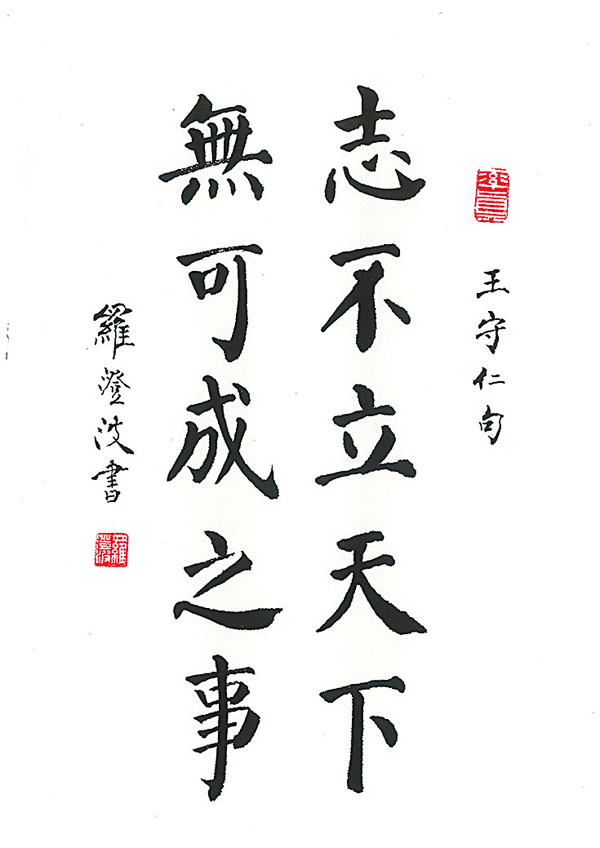 王守仁句
志不立天下
無可成之事
羅澄波書
羅澄波